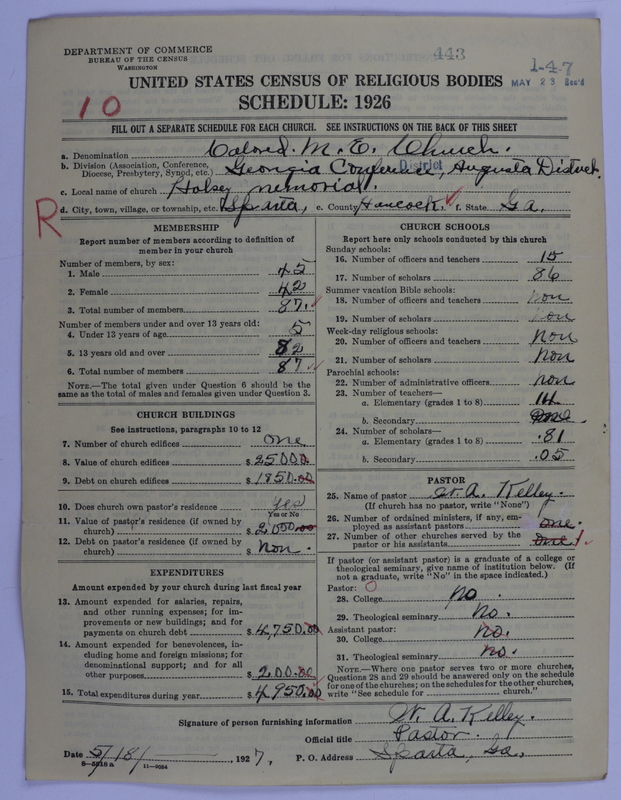 DEPARTMENT OF COMMERCE
BUREAU OF THE CENSUS
WASHINGTON
443
1-4-7
MAY 23 Rec'd
UNITED STATES CENSUS OF RELIGIOUS BODIES
SCHEDULE: 1926
10
FILL OUT A SEPARATE SCHEDULE FOR EACH CHURCH. SEE INSTRUCTIONS ON THE BACK OF THIS SHEET
a. Denomination Colored. M. E. Church.
b. Division (Association, Conference, Diocese, Presbytery, Synod, etc.) Georgia Conference, District Augusta District.
c. Local name of church Holsey memorial.
R
d. City, town, village, or township, etc. Sparta, e. County Hancock, f. State Ga,
MEMBERSHIP
Report number of members according to definition of
member in your church
Number of members, by sex:
1. Male 45
2. Female 42
3. Total number of members 87.
Number of members under and over 13 years old:
4. Under 13 years of age 5
5. 13 years old and over 82
6. Total number of members 87
NOTE.—The total given under Question 6 should be the
same as the total of males and females given under Question 3.
CHURCH BUILDINGS
See instructions, paragraphs 10 to 12
7. Number of church edifices one
8. Value of church edifices $25000
9. Debt on church edifices $1850.00
10. Does church own pastor's residence yes
Yes or No
11. Value of pastor's residence (if owned by
church) $2000.00
12. Debt on pastor's residence (if owned by
church) $ non.
EXPENDITURES
Amount expended by your church during last fiscal year
13. Amount expended for salaries, repairs,
and other running expenses; for im-
provements or new buildings; and for
payments on church debt $4,750.00
14. Amount expended for benevolences, in-
cluding home and foreign missions; for
denominational support; and for all
other purposes $200.00
15. Total expenditures during year $4950.00
CHURCH SCHOOLS
Report here only schools conducted by this church
Sunday schools:
16. Number of officers and teachers 15
17. Number of scholars 86
Summer vacation Bible schools:
18. Number of officers and teachers non
19. Number of scholars non
Week-day religious schools:
20. Number of officers and teachers non
21. Number of scholars non
Parochial schools:
22. Number of administrative officers non
23. Number of teachers—
a. Elementary (grades 1 to 8)
b. Secondary
24. Number of scholars—
a. Elementary (grades 1 to 8) .81
b. Secondary .05
PASTOR
25. Name of pastor W. A. Kelley.
(If church has no pastor, write "None")
26. Number of ordained ministers, if any, em-
ployed as assistant pastors one.
27. Number of other churches served by the
pastor or his assistants one. 1
If pastor (or assistant pastor) is a graduate of a college or
theological seminary, give name of institution below. (If
not a graduate, write "No" in the space indicated.)
Pastor: 0
28. College no.
29. Theological seminary no.
Assistant pastor:
30. College no.
31. Theological seminary no.
NOTE.—Where one pastor serves two or more churches,
Questions 28 and 29 should be answered only on the schedule
for one of the churches; on the schedules for the other churches,
write "See schedule for church."
Signature of person furnishing information W. A. Kelley.
Official title Pastor.
Date 5/18/ 1927, P. O. Address Sparta, Ga,
8—5318a 11—9084